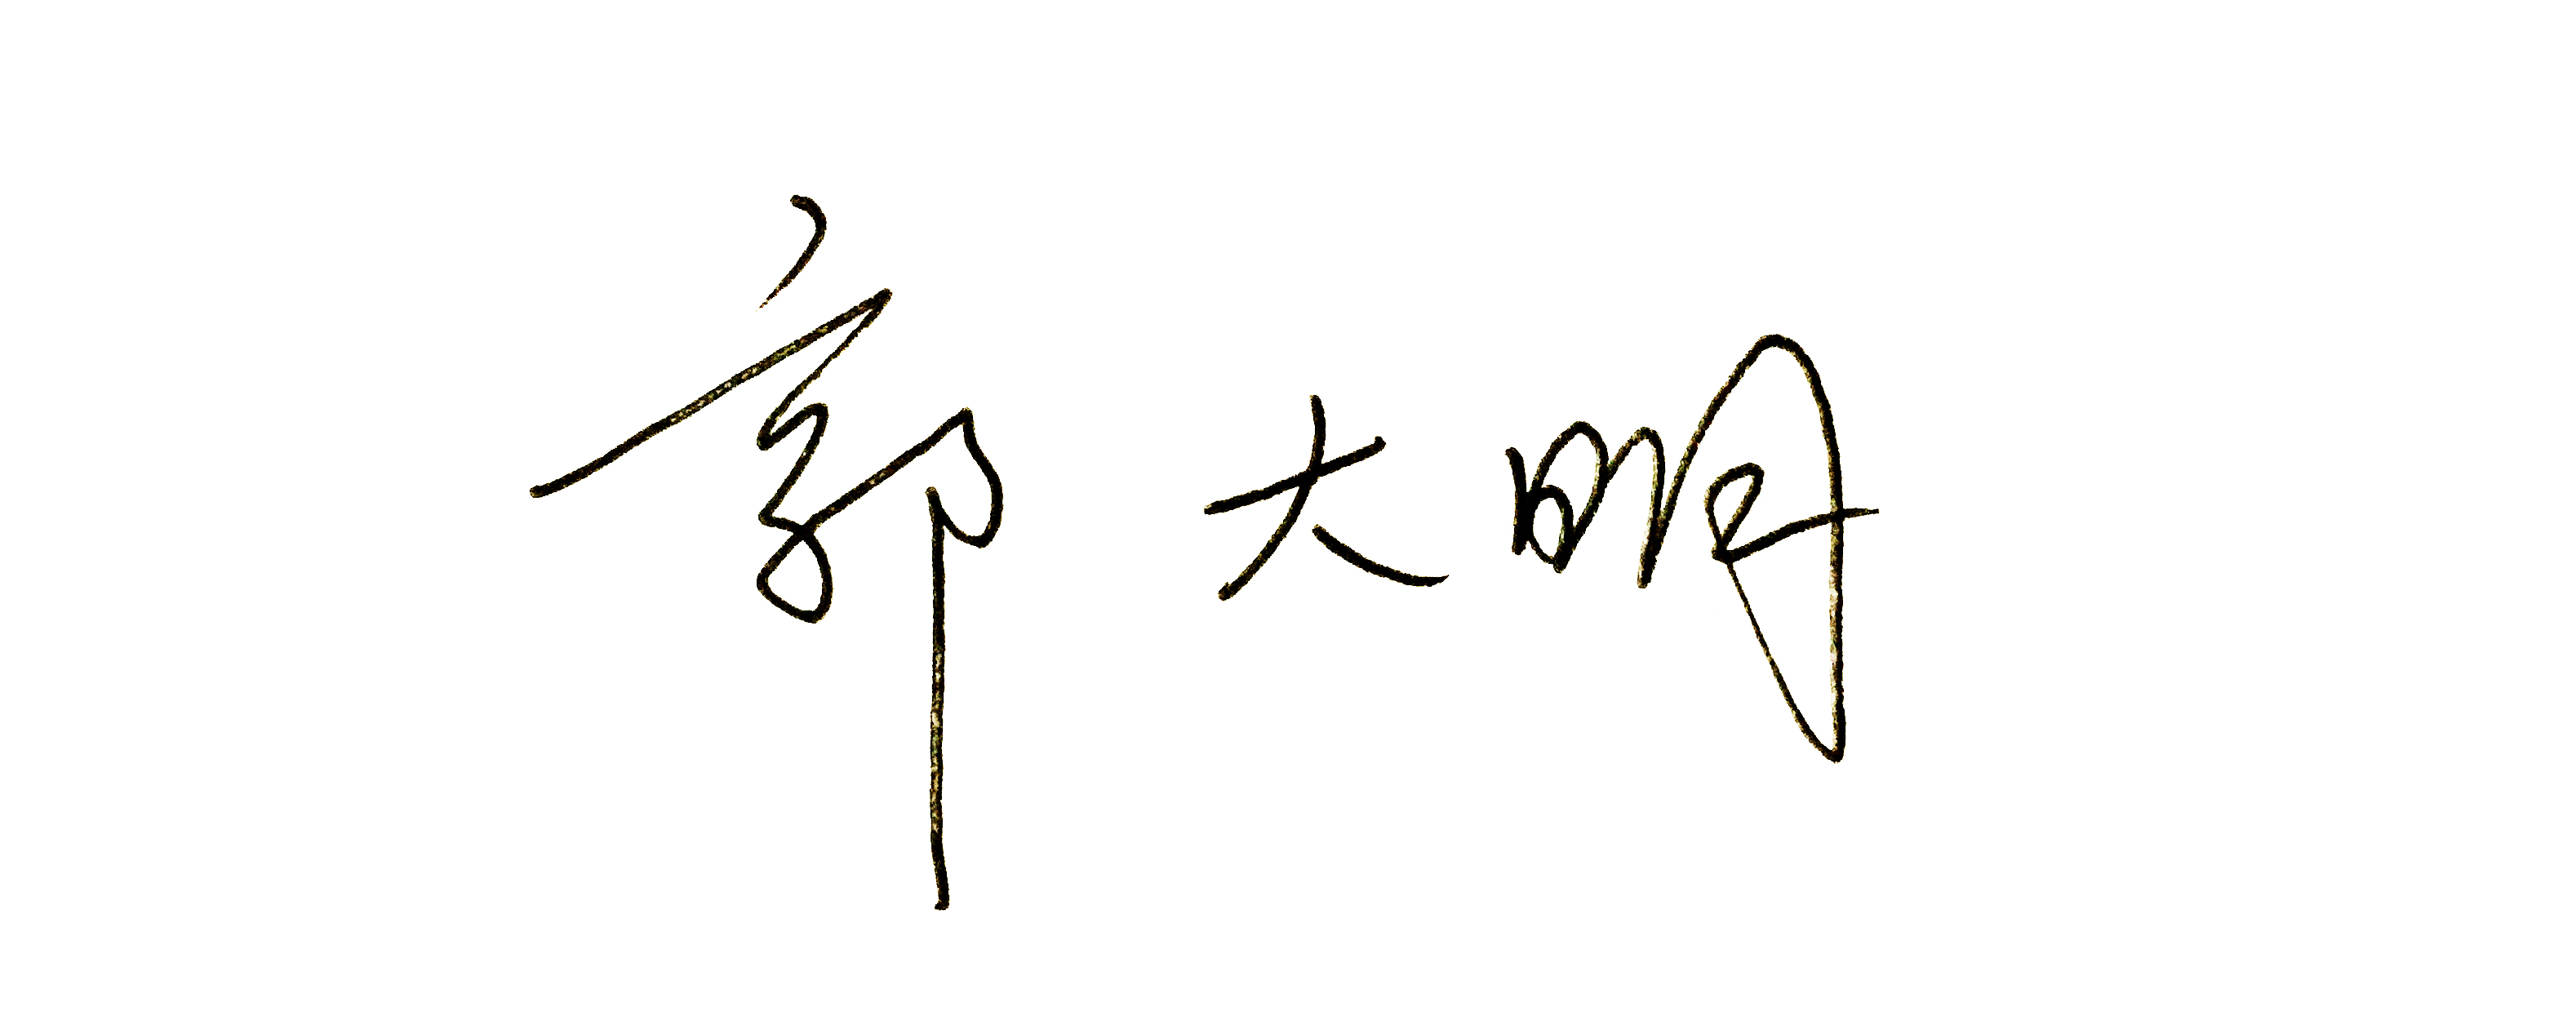 郭大明